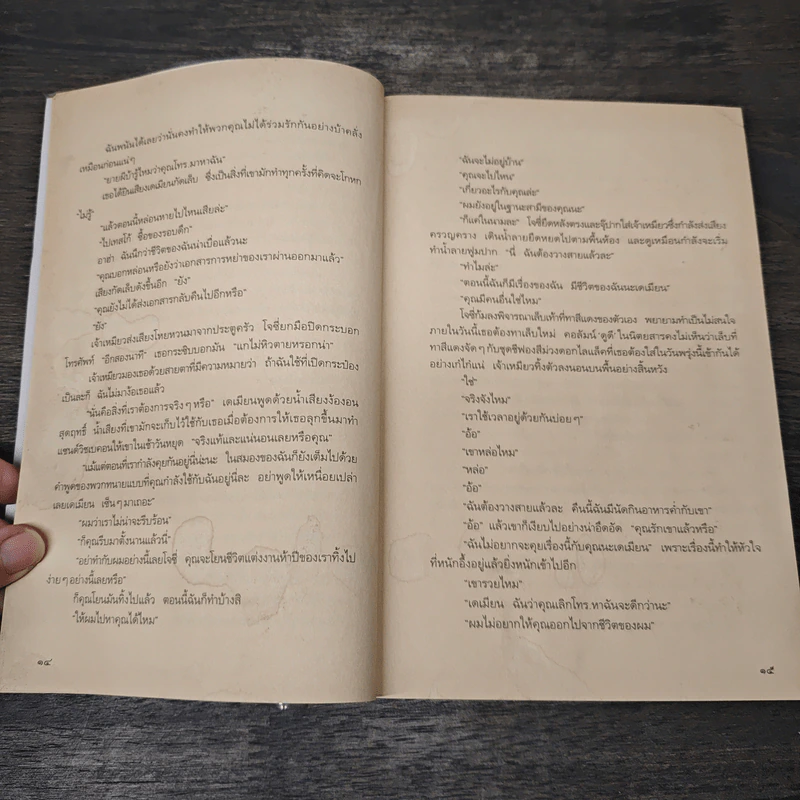 ฉันพนันได้เลยว่านั่นคงทำให้พวกคุณไม่ได้ร่วมรักกันอย่างบ้าคลั่ง
เหมือนก่อนแน่ๆ
"ยายผีบ้ารู้ไหมว่าคุณโทร.มาหาฉัน"
เธอได้ยินเสียงเดเมียนกัดเล็บ ซึ่งเป็นสิ่งที่เขามักทำทุกครั้งที่คิดจะโกหก
"ไม่รู้"
"แล้วตอนนี้หล่อนหายไปไหนเสียล่ะ"
"ไปเทสโก้ ซื้อของรอบดึก"
อาฮ่า ฉันนึกว่าชีวิตของฉันน่าเบื่อแล้วนะ
"คุณบอกหล่อนหรือยังว่าเอกสารการหย่าของเราผ่านออกมาแล้ว"
เสียงกัดเล็บดังขึ้นอีก "ยัง"
"คุณยังไม่ได้ส่งเอกสารกลับคืนไปอีกหรือ"
"ยัง"
เจ้าเหมียวส่งเสียงโหยหวนมาจากประตูครัว โจซี่ยกมือปิดกระบอก
โทรศัพท์ "อีกสองนาที" เธอกระซิบบอกมัน "แกไม่หิวตายหรอกน่า"
เจ้าเหมียวมองเธอด้วยสายตาที่มีความหมายว่า ถ้าฉันใช้ที่เปิดกระป๋อง
เป็นละก็ ฉันไม่มาง้อเธอแล้ว
"นั่นคือสิ่งที่เราต้องการจริงๆ หรือ" เดเมียนพูดด้วยน้ำเสียงง้องอน
สุดฤทธิ์ น้ำเสียงที่เขามักจะเก็บไว้ใช้กับเธอเมื่อต้องการให้เธอลุกขึ้นมาทำ
แซนด์วิชเบคอนให้เขาในเช้าวันหยุด "จริงแท้และแน่นอนเลยหรือคุณ"
"แม้แต่ตอนที่เรากำลังคุยกันอยู่นี่น่ะนะ ในสมองของฉันก็ยังเต็มไปด้วย
คำพูดของพวกทนายแบบที่คุณกำลังใช้กับฉันอยู่นี่ละ อย่าพูดให้เหนื่อยเปล่า
เลยเดเมียน เซ็นๆ มาเถอะ"
"ผมว่าเราไม่น่าจะรีบร้อน"
"ก็คุณรีบมาตั้งนานแล้วนี่"
"อย่าทำกับผมอย่างนี้เลยโจซี่ คุณจะโยนชีวิตแต่งงานห้าปีของเราทิ้งไป
ง่ายๆ อย่างนี้เลยหรือ"
ก็คุณโยนมันทิ้งไปแล้ว ตอนนี้ฉันก็ทำบ้างสิ
"ให้ผมไปหาคุณได้ไหม"
๑๔
"ฉันจะไม่อยู่บ้าน"
"คุณจะไปไหน"
"เกี่ยวอะไรกับคุณล่ะ"
"ผมยังอยู่ในฐานะสามีของคุณนะ"
"ก็แค่ในนามละ" โจซี่ยืดหลังตรงและจุ๊ปากใส่เจ้าเหมียวซึ่งกำลังส่งเสียง
ครวญคราง เดินน้ำลายยืดหยดไปตามพื้นห้อง และดูเหมือนกำลังจะเริ่ม
ทำน้ำลายฟูมปาก "นี่ ฉันต้องวางสายแล้วละ"
"ทำไมล่ะ"
"ตอนนี้ฉันก็มีเรื่องของฉัน มีชีวิตของฉันนะเดเมียน"
"คุณมีคนอื่นใช่ไหม"
โจซี่ก้มลงพิจารณาเล็บเท้าที่ทาสีแดงของตัวเอง พยายามทำเป็นไม่สนใจ
ภายในวันนี้เธอต้องทาเล็บใหม่ คอลัมน์ 'ดูดี' ในนิตยสารคงไม่เห็นว่าเล็บที่
ทาสีแดงจัดๆ กับชุดชีฟองสีม่วงดอกไลแล็คที่เธอต้องใส่ในวันพรุ่งนี้เข้ากันได้
อย่างเก๋ไก๋แน่ เจ้าเหมียวทิ้งตัวลงนอนบนพื้นอย่างสิ้นหวัง
"ใช่"
"จริงจังไหม"
"เราใช้เวลาอยู่ด้วยกันบ่อยๆ"
"อ้อ"
"เขาหล่อไหม"
"หล่อ"
"อ้อ"
"ฉันต้องวางสายแล้วละ คืนนี้ฉันมีนัดกินอาหารค่ำกับเขา"
"อ้อ" แล้วเขาก็เงียบไปอย่างน่าอึดอัด "คุณรักเขาแล้วหรือ"
"ฉันไม่อยากจะคุยเรื่องนี้กับคุณนะเดเมียน" เพราะเรื่องนี้ทำให้หัวใจ
ที่หนักอึ้งอยู่แล้วยิ่งหนักเข้าไปอีก
"เขารวยไหม"
"เดเมียน ฉันว่าคุณเลิกโทร.หาฉันจะดีกว่านะ"
"ผมไม่อยากให้คุณออกไปจากชีวิตของผม"
๑๕